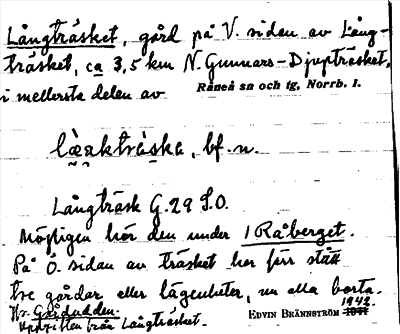 Långträsket, gård på V. sidan av Lång-
träsket, ca 3,5 km N. Gunnars-Djupträsket,
i mellersta delen av Råneå sn och tg, Norrb. l.
bf. n.
Långträsk G. 29 S.O.
Möjligen hör den under 1 Råberget.
På Ö. sidan av träsket har förr stått
tre gårdar eller lägenheter, nu alla borta.
Gårdudden.
EDVIN BRÄNNSTRÖM 1942
från Långträsket.